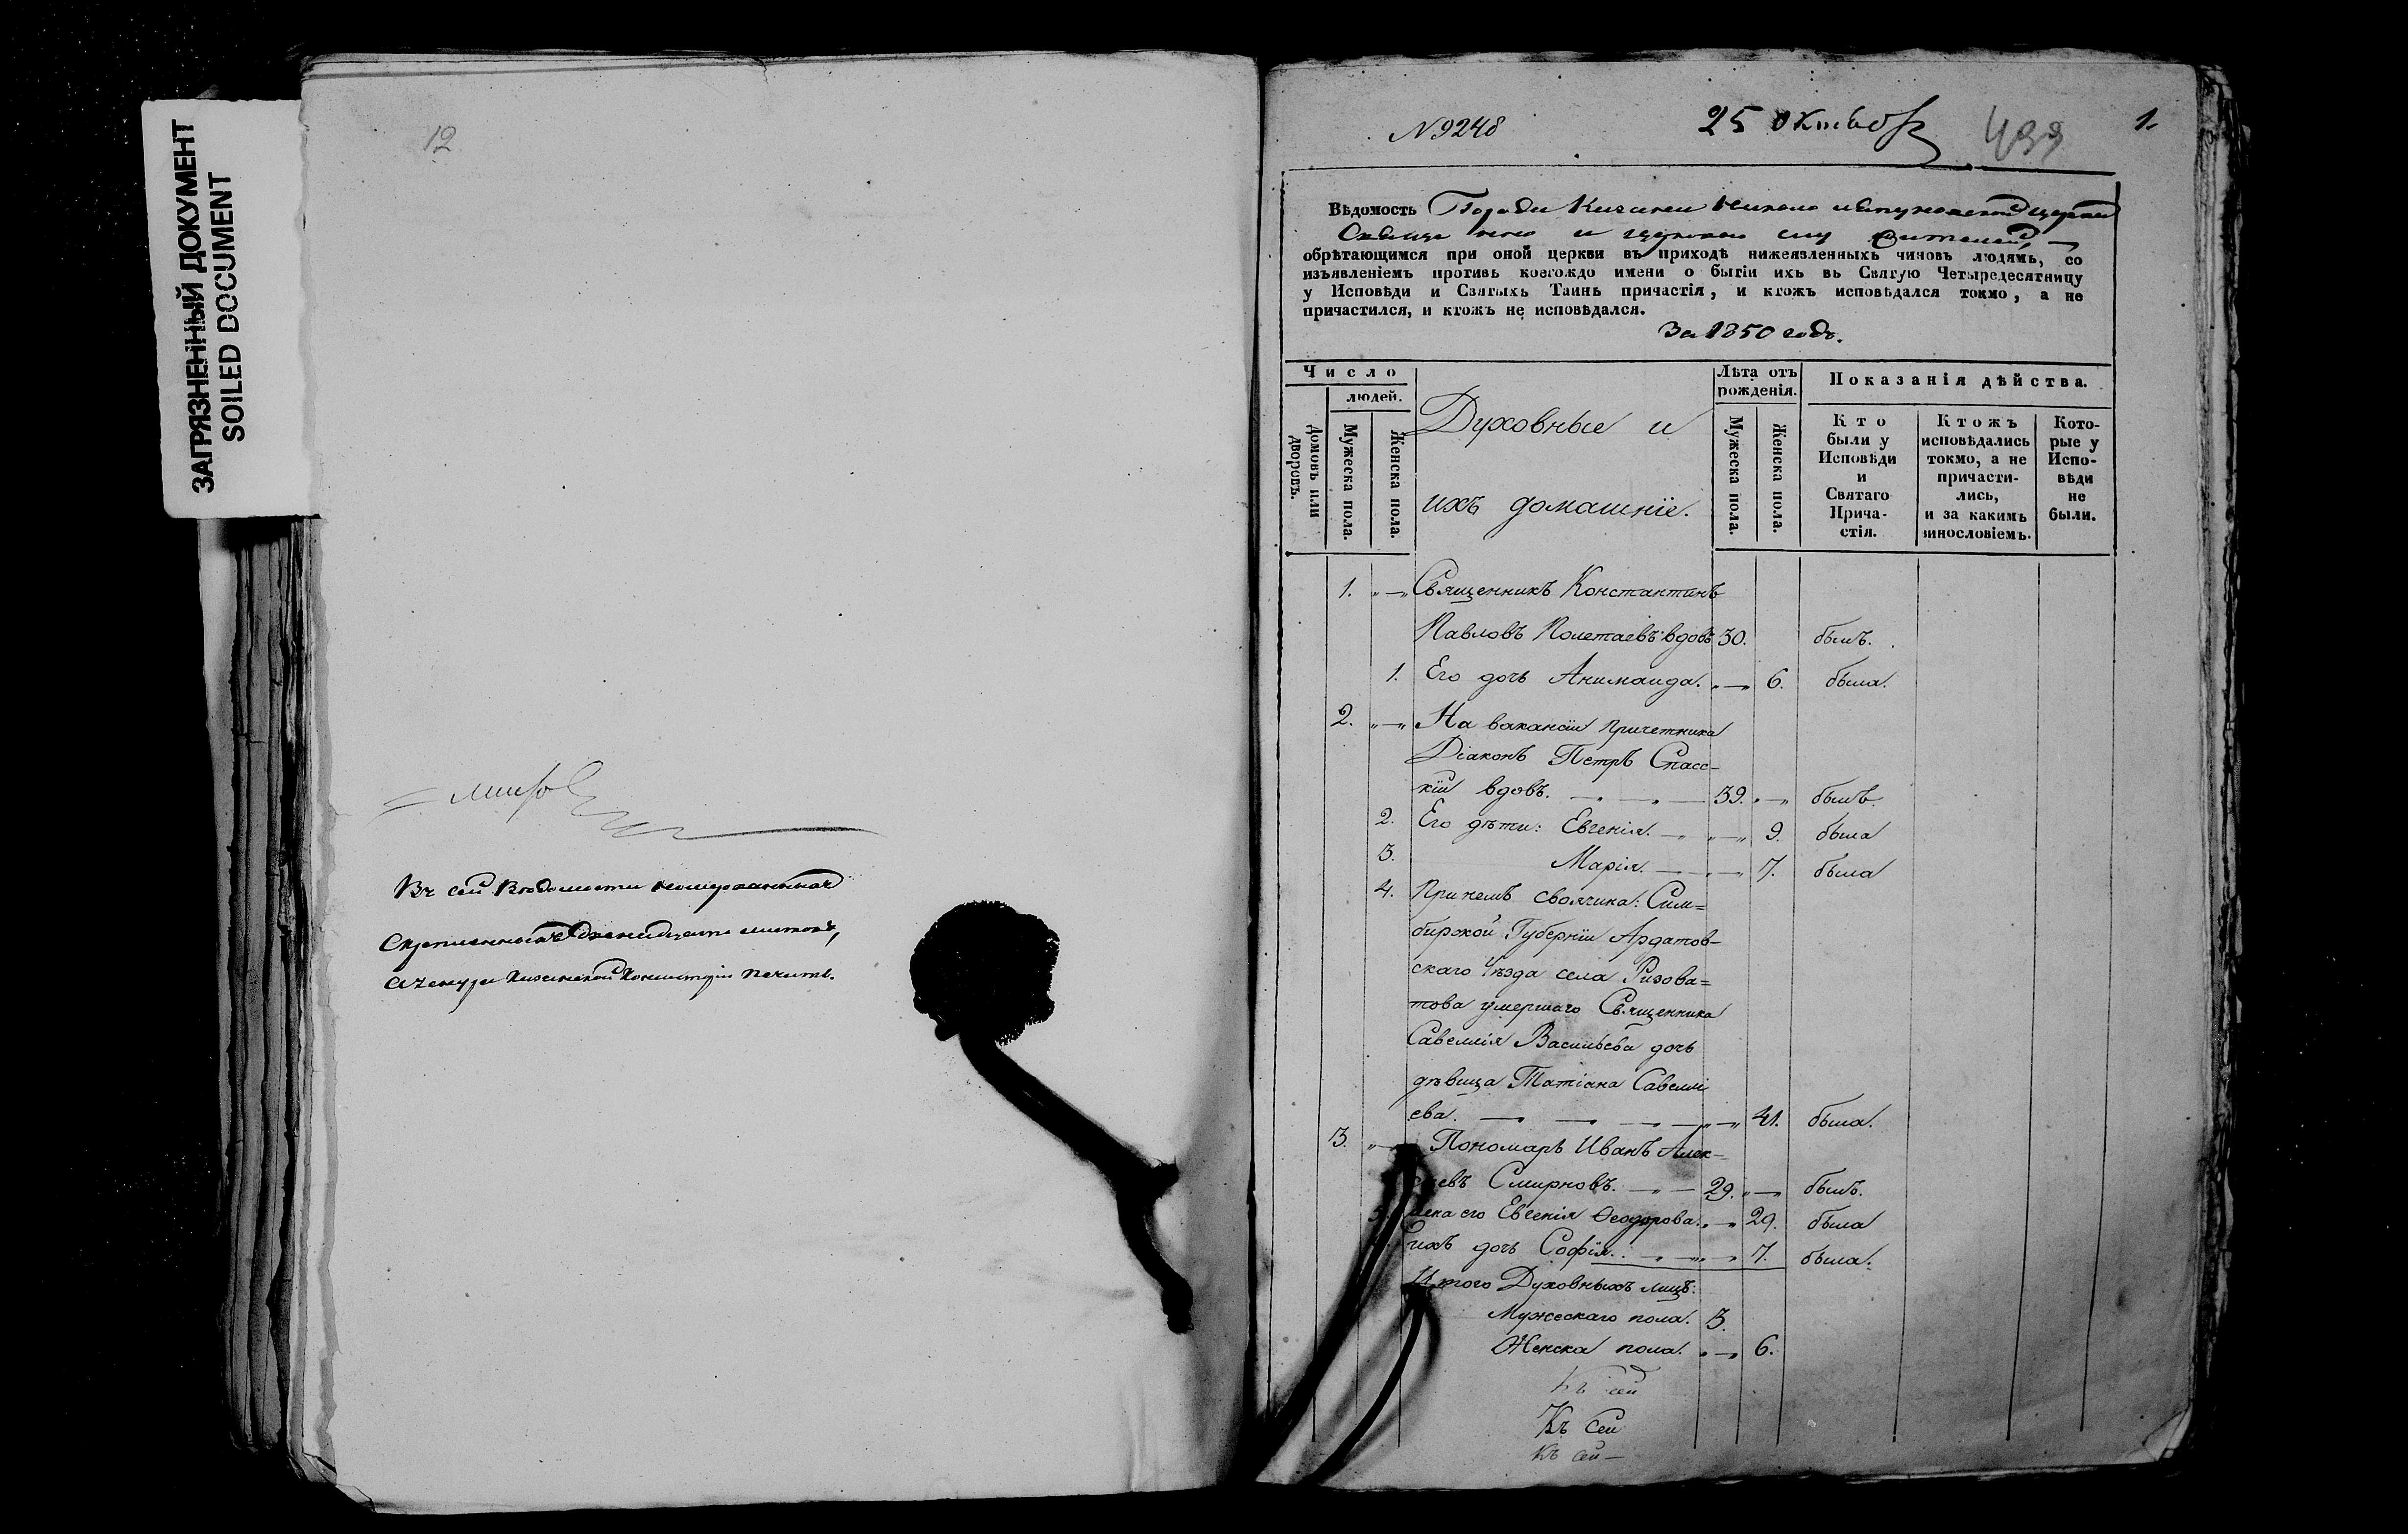 ЗАГРЯЗНЕННЫЙ ДОКУМЕНТ
SOILED DOCUMENT
12
Въ сей Ведомости номерованныхъ
скрепленныхъ двенадцать листовъ,
Консисторiи печать.
№ 9248
25 октяб
439
1.
Вѣдомость Города Казани церкви
обрѣтающимся при оной церкви въ приходѣ нижеявленныхъ чиновъ людямъ, со
изъявленiемъ противъ коегождо имени о бытiи ихъ въ Святую Четыредесятницу
у Исповѣди и Святыхъ Таинъ причастiя, и ктожъ исповѣдался токмо, а не
причастился, и ктожъ не исповѣдался.
За 1850 годъ.
Число
людей.
Домовъ или дворовъ.
Мужеска пола.
Женска пола.
Духовные и
ихъ домашнiе.
Лѣта отъ
рожденiя.
Мужеска пола.
Женска пола.
Показанiя дѣйства.
Кто
были у
Исповѣди
и
Святаго
Прича-
стiя.
Ктожъ
исповѣдались
токмо, а не
причасти-
лись,
и за какимъ
винословiемъ.
Кото-
рые у
Испо-
вѣди
не
были.
1. „—„ Священникъ Константинъ
Павловъ Полетаевъ вдовъ 30. былъ.
1. Его дочь Анимаида. „—„ 6. была.
2. „—„ На вакансiи причетника
Дiаконъ Петръ Спасс-
кiй вдовъ. — „ — „ — 39. „—„ былъ.
2. Его дѣти: Евгенiя. — „ „—„ 9. была
3. Марiя. — „ — „ 7. была
4. При немъ своячина: Сим=
бирской Губернiи Ардатов-
скаго Уѣзда села Ризова=
това умершаго Священника
Савеллiя Васильева дочь
дѣвица Татiана Савеллi
ева. — „ — „ — „ — „ 41. была.
3. „— Пономарь Иванъ Алек-
сѣевъ Смирновъ. — „ — 29. „—„ былъ.
5. Жена его Евгенiя Ѳеодорова. „—„ 29. была
ихъ дочь Софiя. — „ — „ 7. была.
Итого Духовныхъ лицъ:
Мужескаго пола. 3.
Женска пола. „—„ 6.
Къ сей
Къ сей
Къ сей —